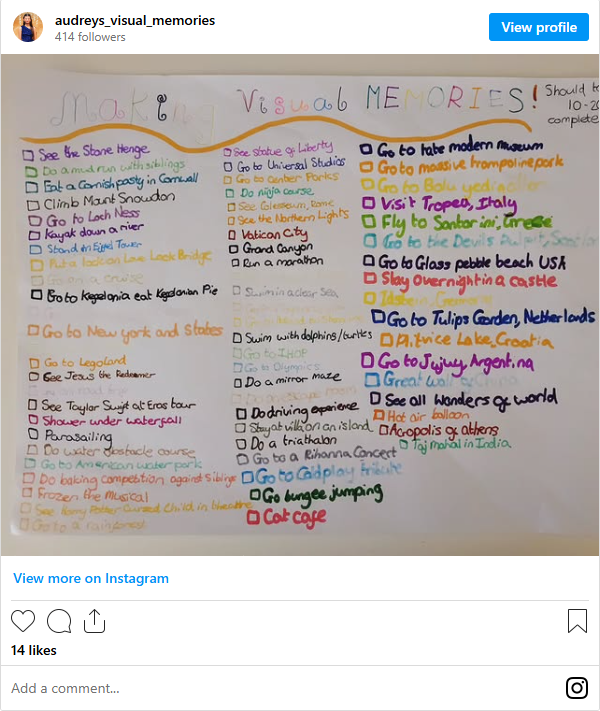 audreys_visual_memories
414 followers
View profile
Making Visual MEMORIES!
Should
10-20
complete
See the Stone Henge
Do a mud run with siblings
Eat a Cornish pasty in Cornwall
Climb Mount Snowdon
Go to Loch Ness
Kayak down a river
Stand in Eiffel Tower
Put a lock on Love Lock Bridge
Go on a cruise
Go to Kegalonia eat Kegalonian Pie
Go to New york and States
Go to Legoland
See Jesus the Redeemer
See Taylor Swift at Eras tour
Shower under waterfall
Parasailing
Do water obstacle course
Go to American water park
Do baking competition against Siblings
Frozen the Musical
See Harry Potter Cursed Child in theatre
Go to a rainforest
See Statue of Liberty
Go to Universal Studios
Go to Center Parks
Do ninja course
See Colosseum, Rome
See the Northern Lights
Vatican City
Grand Canyon
Run a marathon
Swim in a clear Sea
Swim with dolphins/turtles
Go to IHOP
Go to Olympics
Do a mirror maze
Do driving experience
Stay at villa on an island
Do a triathalon
Go to a Rihanna Concert
Go to Coldplay tribute
Go bungee jumping
Cat cafe
Go to tate modern museum
Go to massive trampoline park
Go to Bolu
Visit Tropea, Italy
Fly to Santorini, Greece
Go to the Devils Pulpit,
Go to Glass pebble beach USA
Stay Overnight in a castle
Go to Tulips Garden, Netherlands
Plitvice Lake, Croatia
Go to Jujuy, Argentina
Great wall of China
See all Wonders of world
Hot air balloon
Acropolis of athens
Taj mahal in India
View more on Instagram
14 likes
Add a comment...